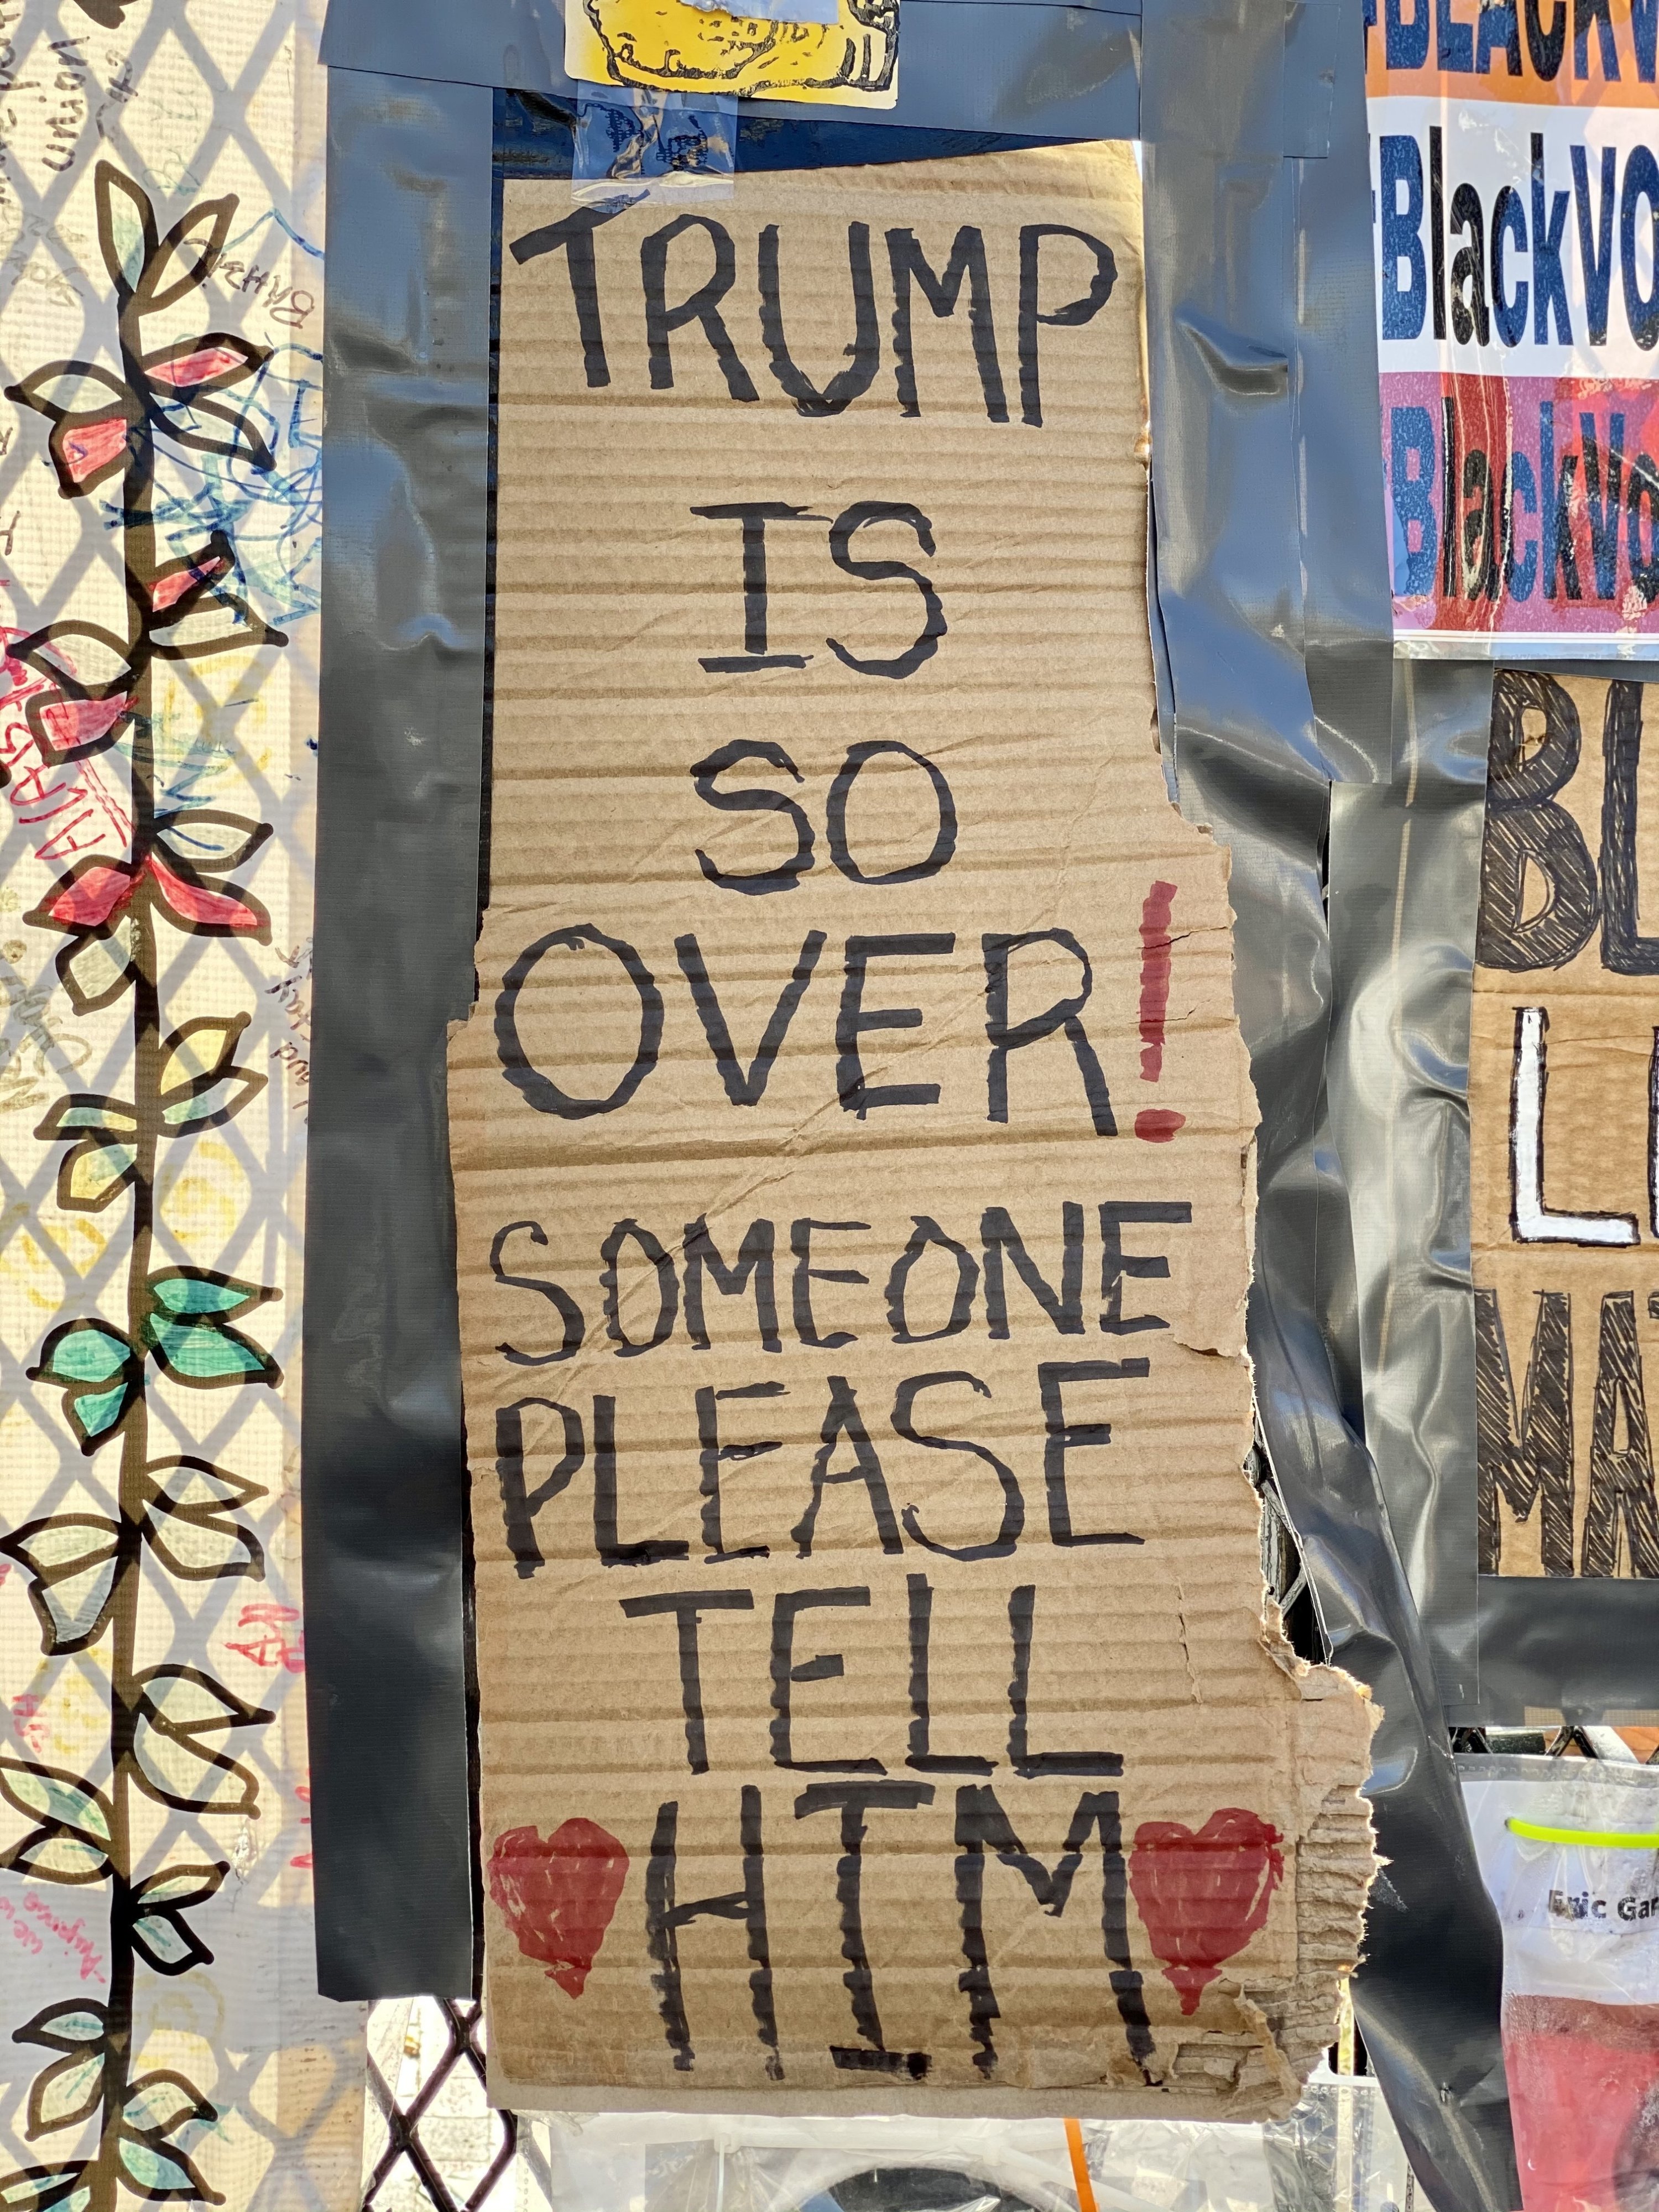 TRUMP
IS
SO
OVER!
SOMEONE
PLEASE
TELL
HIM
union
#BLACKV
#BlackVO
#BlackVo
BL
L
MA
Eric Gar